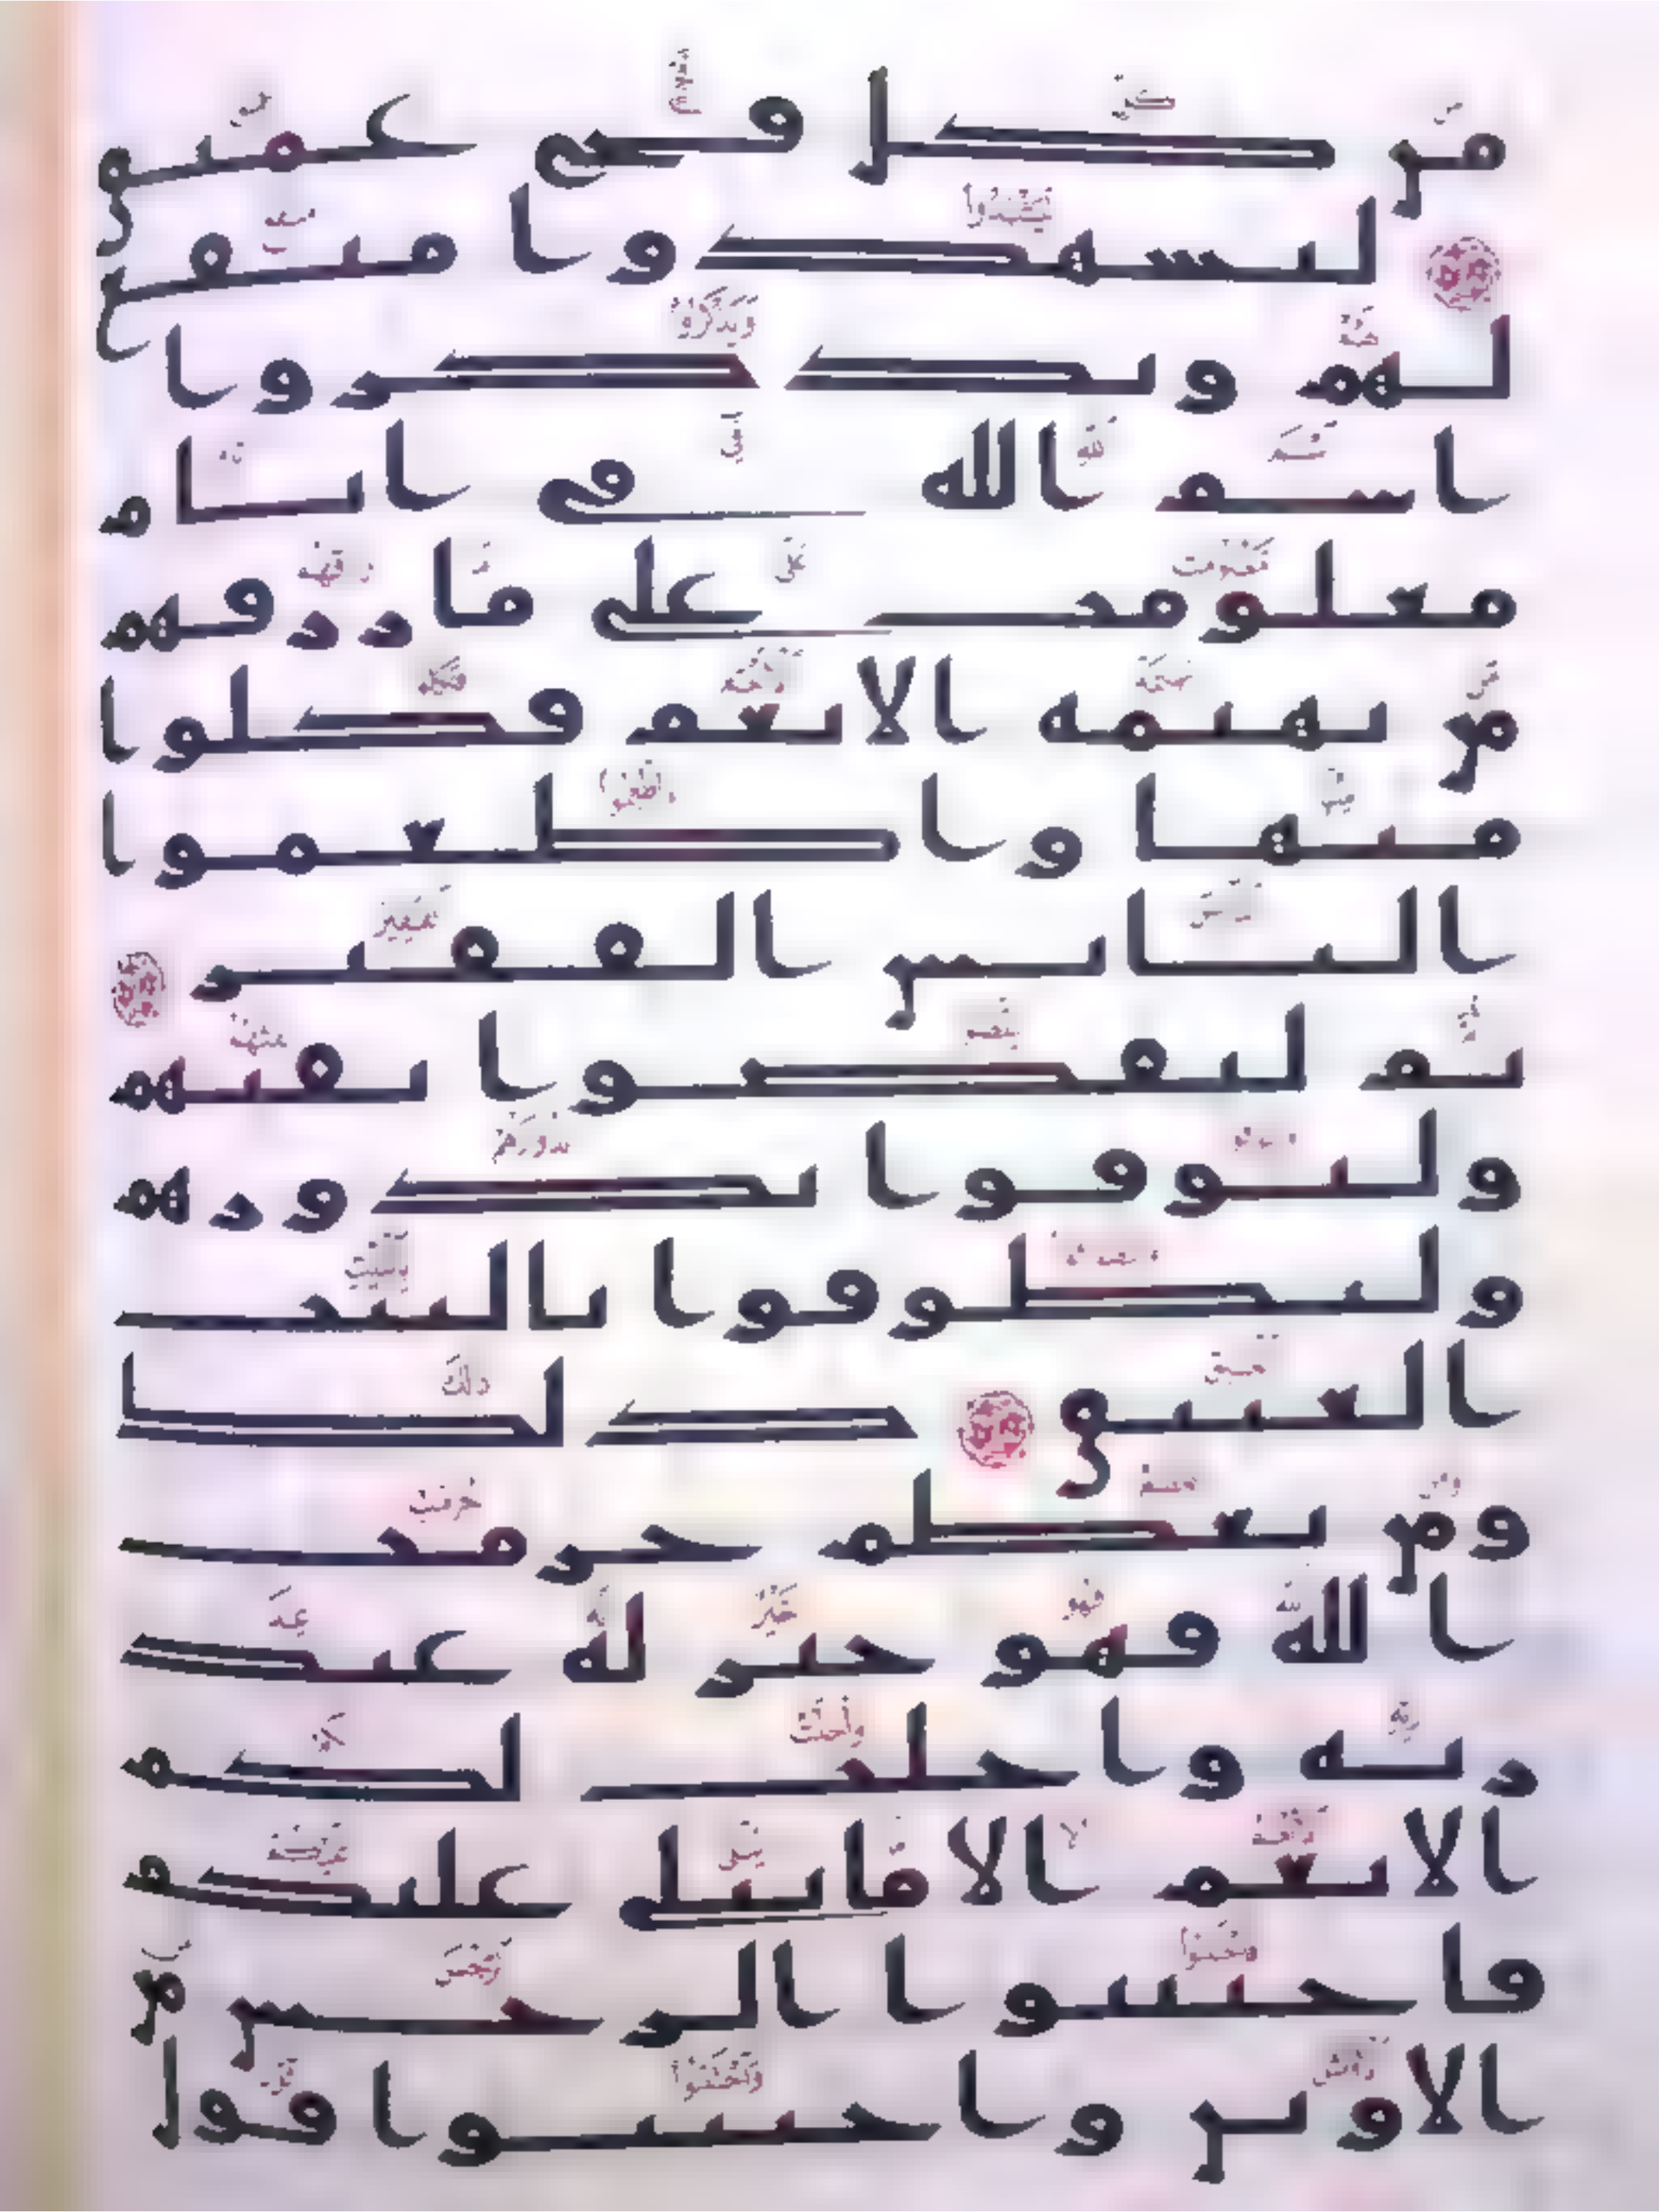 من كل فج عميق
ليشهدوا منفع
لهم ويذكروا
اسم الله في ايام
معلومت على ما رزقهم
من بهيمة الانعم فكلوا
منها واطعموا
البايس الفقير
ثم ليقضوا تفثهم
وليوفوا نذورهم
وليطوفوا بالبيت
العتيق ذلك
ومن يعظم حرمت
الله فهو خير له عند
ربه واحلت لكم
الانعم الا ما يتلى عليكم
فاجتنبوا الرجس من
الاوثن واجتنبوا قول